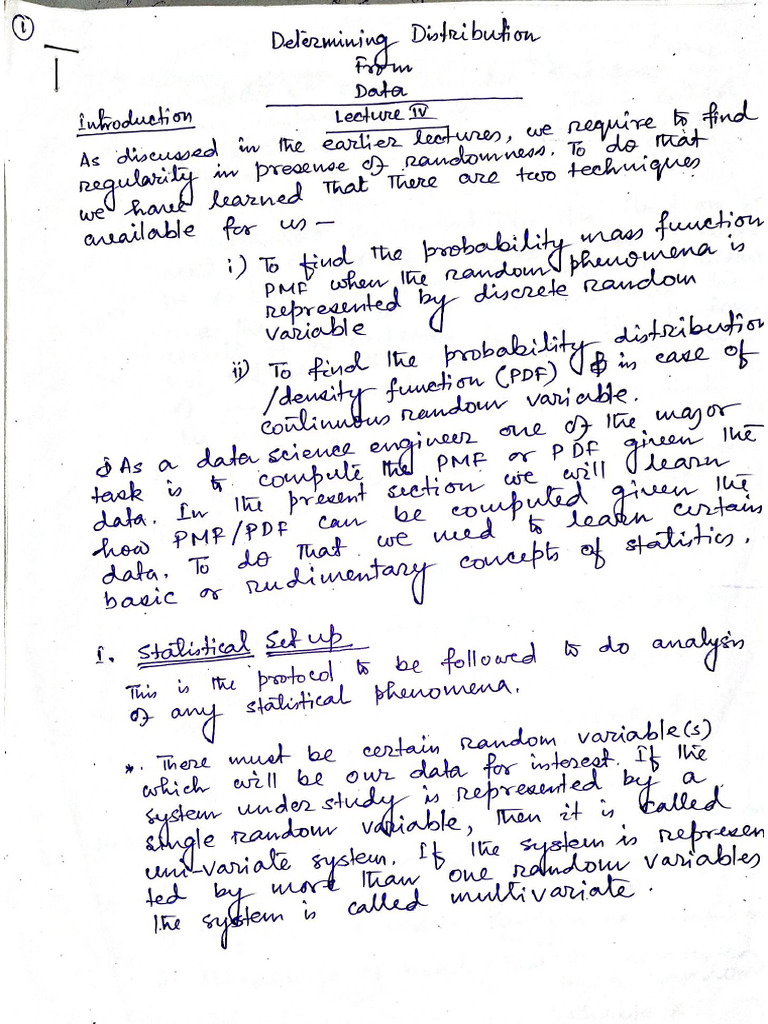 1
Determining Distribution
From
Data
Lecture IV
Introduction
As discussed in the earlier lectures, we require to find
regularity in presense of randomness. To do that
we have learned that there are two techniques
available for us –
i) To find the probability mass function
PMF when the random phenomena is
represented by discrete random
variable
ii) To find the probability distribution
/density function (PDF) in case of
continuous random variable.
As a data science engineer one of the major
task is to compute the PMF or PDF given the
data. In the present section we will learn
how PMF/PDF can be computed given the
data. To do that we need to learn certain
basic or rudimentary concepts of statistics.
1. Statistical Set up
This is the protocol to be followed to do analysis
of any statistical phenomena.
*. There must be certain random variable(s)
which will be our data for interest. If the
system under study is represented by a
single random variable, then it is called
uni-variate system. If the system is represen
ted by more than one random variables
the system is called multivariate.